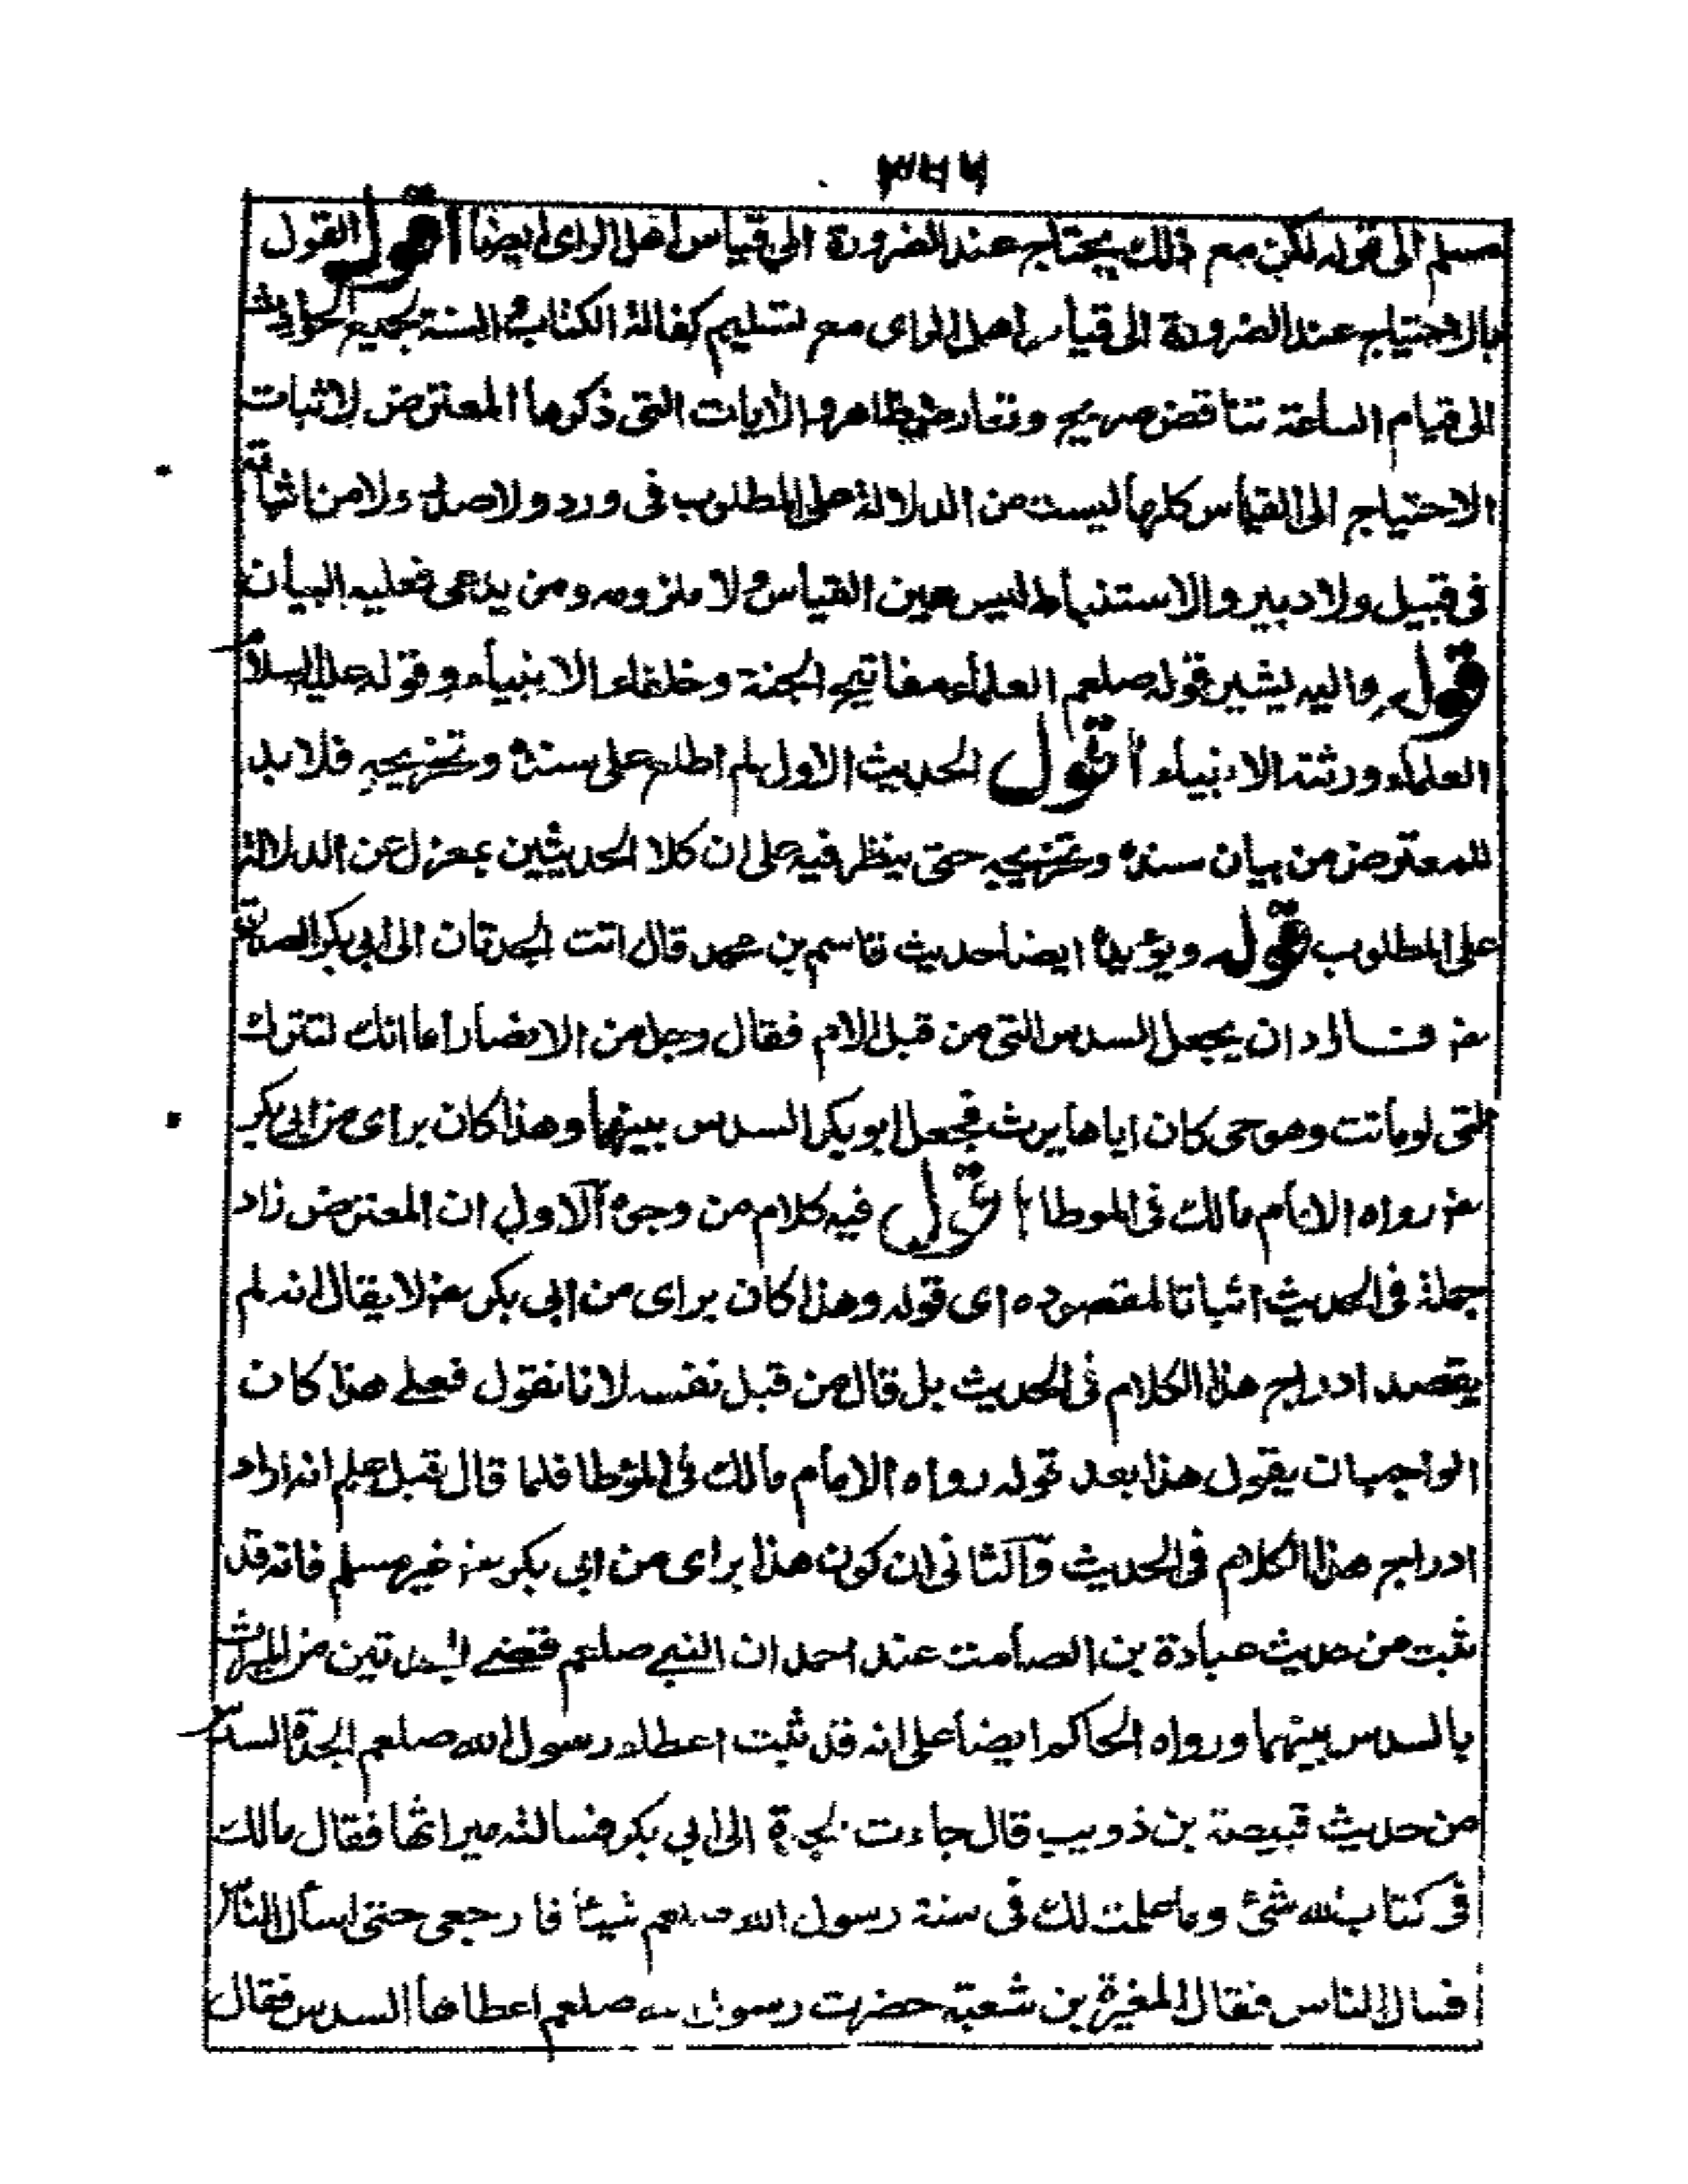 ٣٢٦
مسلم الى قوله لكن مع ذلك يحتاج عند الضرورة الى قياس اهل الراى ايضا اقول القول
بالاحتياج عند الضرورة الى قياس اهل الراى مع تسليم كفالة الكتاب والسنة بجميع الحوادث
الى قيام الساعة تناقض صريح وتعارض ظاهر والآيات التى ذكرها المعترض لاثبات
الاحتياج الى القياس كلها ليست من الدلالة على المطلوب فى ورد ولا صدر ولا من اثباته
فى قبيل ولا دبير والاستنباط ليس عين القياس ولا ملزومه ومن يدعى فعليه البيان
قوله واليه يشير قوله صلعم العلماء مفاتيح الجنة وخلفاء الانبياء وقوله عليه السلام
العلماء ورثة الانبياء اقول الحديث الاول لم اطلع على سنده وتخريجه فلا بد
للمعترض من بيان سنده وتخريجه حتى ينظر فيه على ان كلا الحديثين بمعزل عن الدلالة
على المطلوب قوله ويؤيده ايضا حديث قاسم بن محمد قال اتت الجدتان الى ابى بكر الصديق
رضـ فاراد ان يجعل السدس التى من قبل الام فقال رجل من الانصار أما انك لتترك
التى لو ماتت وهو حى كان اياها يرث فجعل ابو بكر السدس بينهما وهذا كان براى من ابى بكر
رضـ رواه الامام مالك فى الموطا اقول فيه كلام من وجوه الاول ان المعترض زاد
جملة فى الحديث اثباتا لمقصوده اى قوله وهذا كان براى من ابى بكر رضـ لا يقال انه لم
يقصد ادراج هذا الكلام فى الحديث بل قال من قبل نفسه لانا نقول فعلى هذا كان
الواجب ان يقول هذا بعد قوله رواه الامام مالك فى المؤطا فلما قال قبل علم انه اراد
ادراج هذا الكلام فى الحديث والثانى ان كون هذا براى من ابى بكر رضـ غير مسلم فانه قد
ثبت من حديث عبادة بن الصامت عند احمد ان النبى صلعم قضى للجدتين من الميراث
بالسدس بينهما ورواه الحاكم ايضا على انه قد ثبت اعطاء رسول الله صلعم الجدة السدس
من حديث قبيصة بن ذويب قال جاءت الجدة الى ابى بكر فسالته ميراثها فقال مالك
فى كتاب الله شئ وما علمت لك فى سنة رسول الله صلعم شيئا فارجعى حتى اسأل الناس
فسال الناس فقال المغيرة بن شعبة حضرت رسول الله صلعم اعطاها السدس فقال